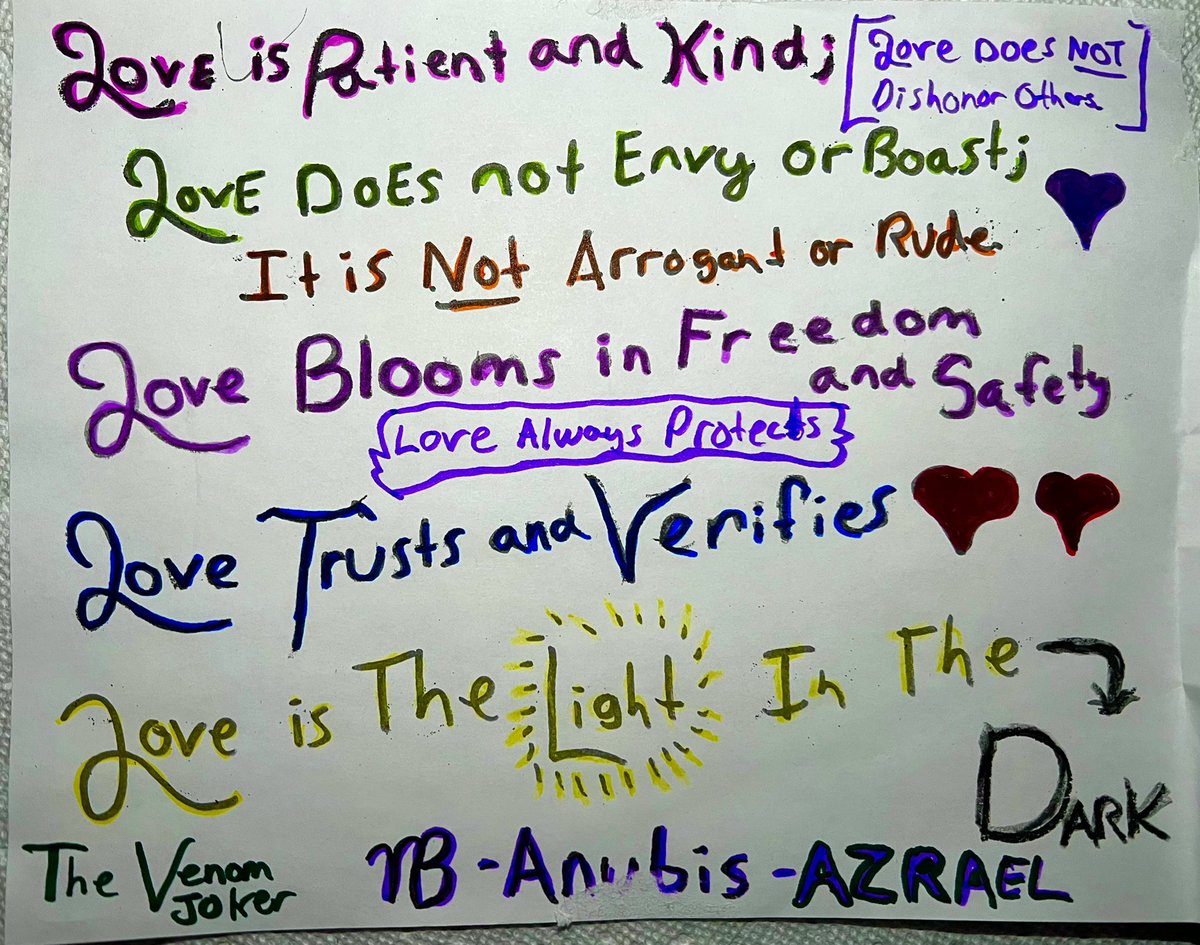 Love is Patient and Kind; [Love Does NOT
Dishonor Others.]
LovE DoEs not Envy or Boast;
It is Not Arrogant or Rude.
Love Blooms in Freedom
and Safety
{Love Always Protects}
Love Trusts and Verifies
Love is The Light In The
DARK
The Venom
Joker
Anubis - AZRAEL